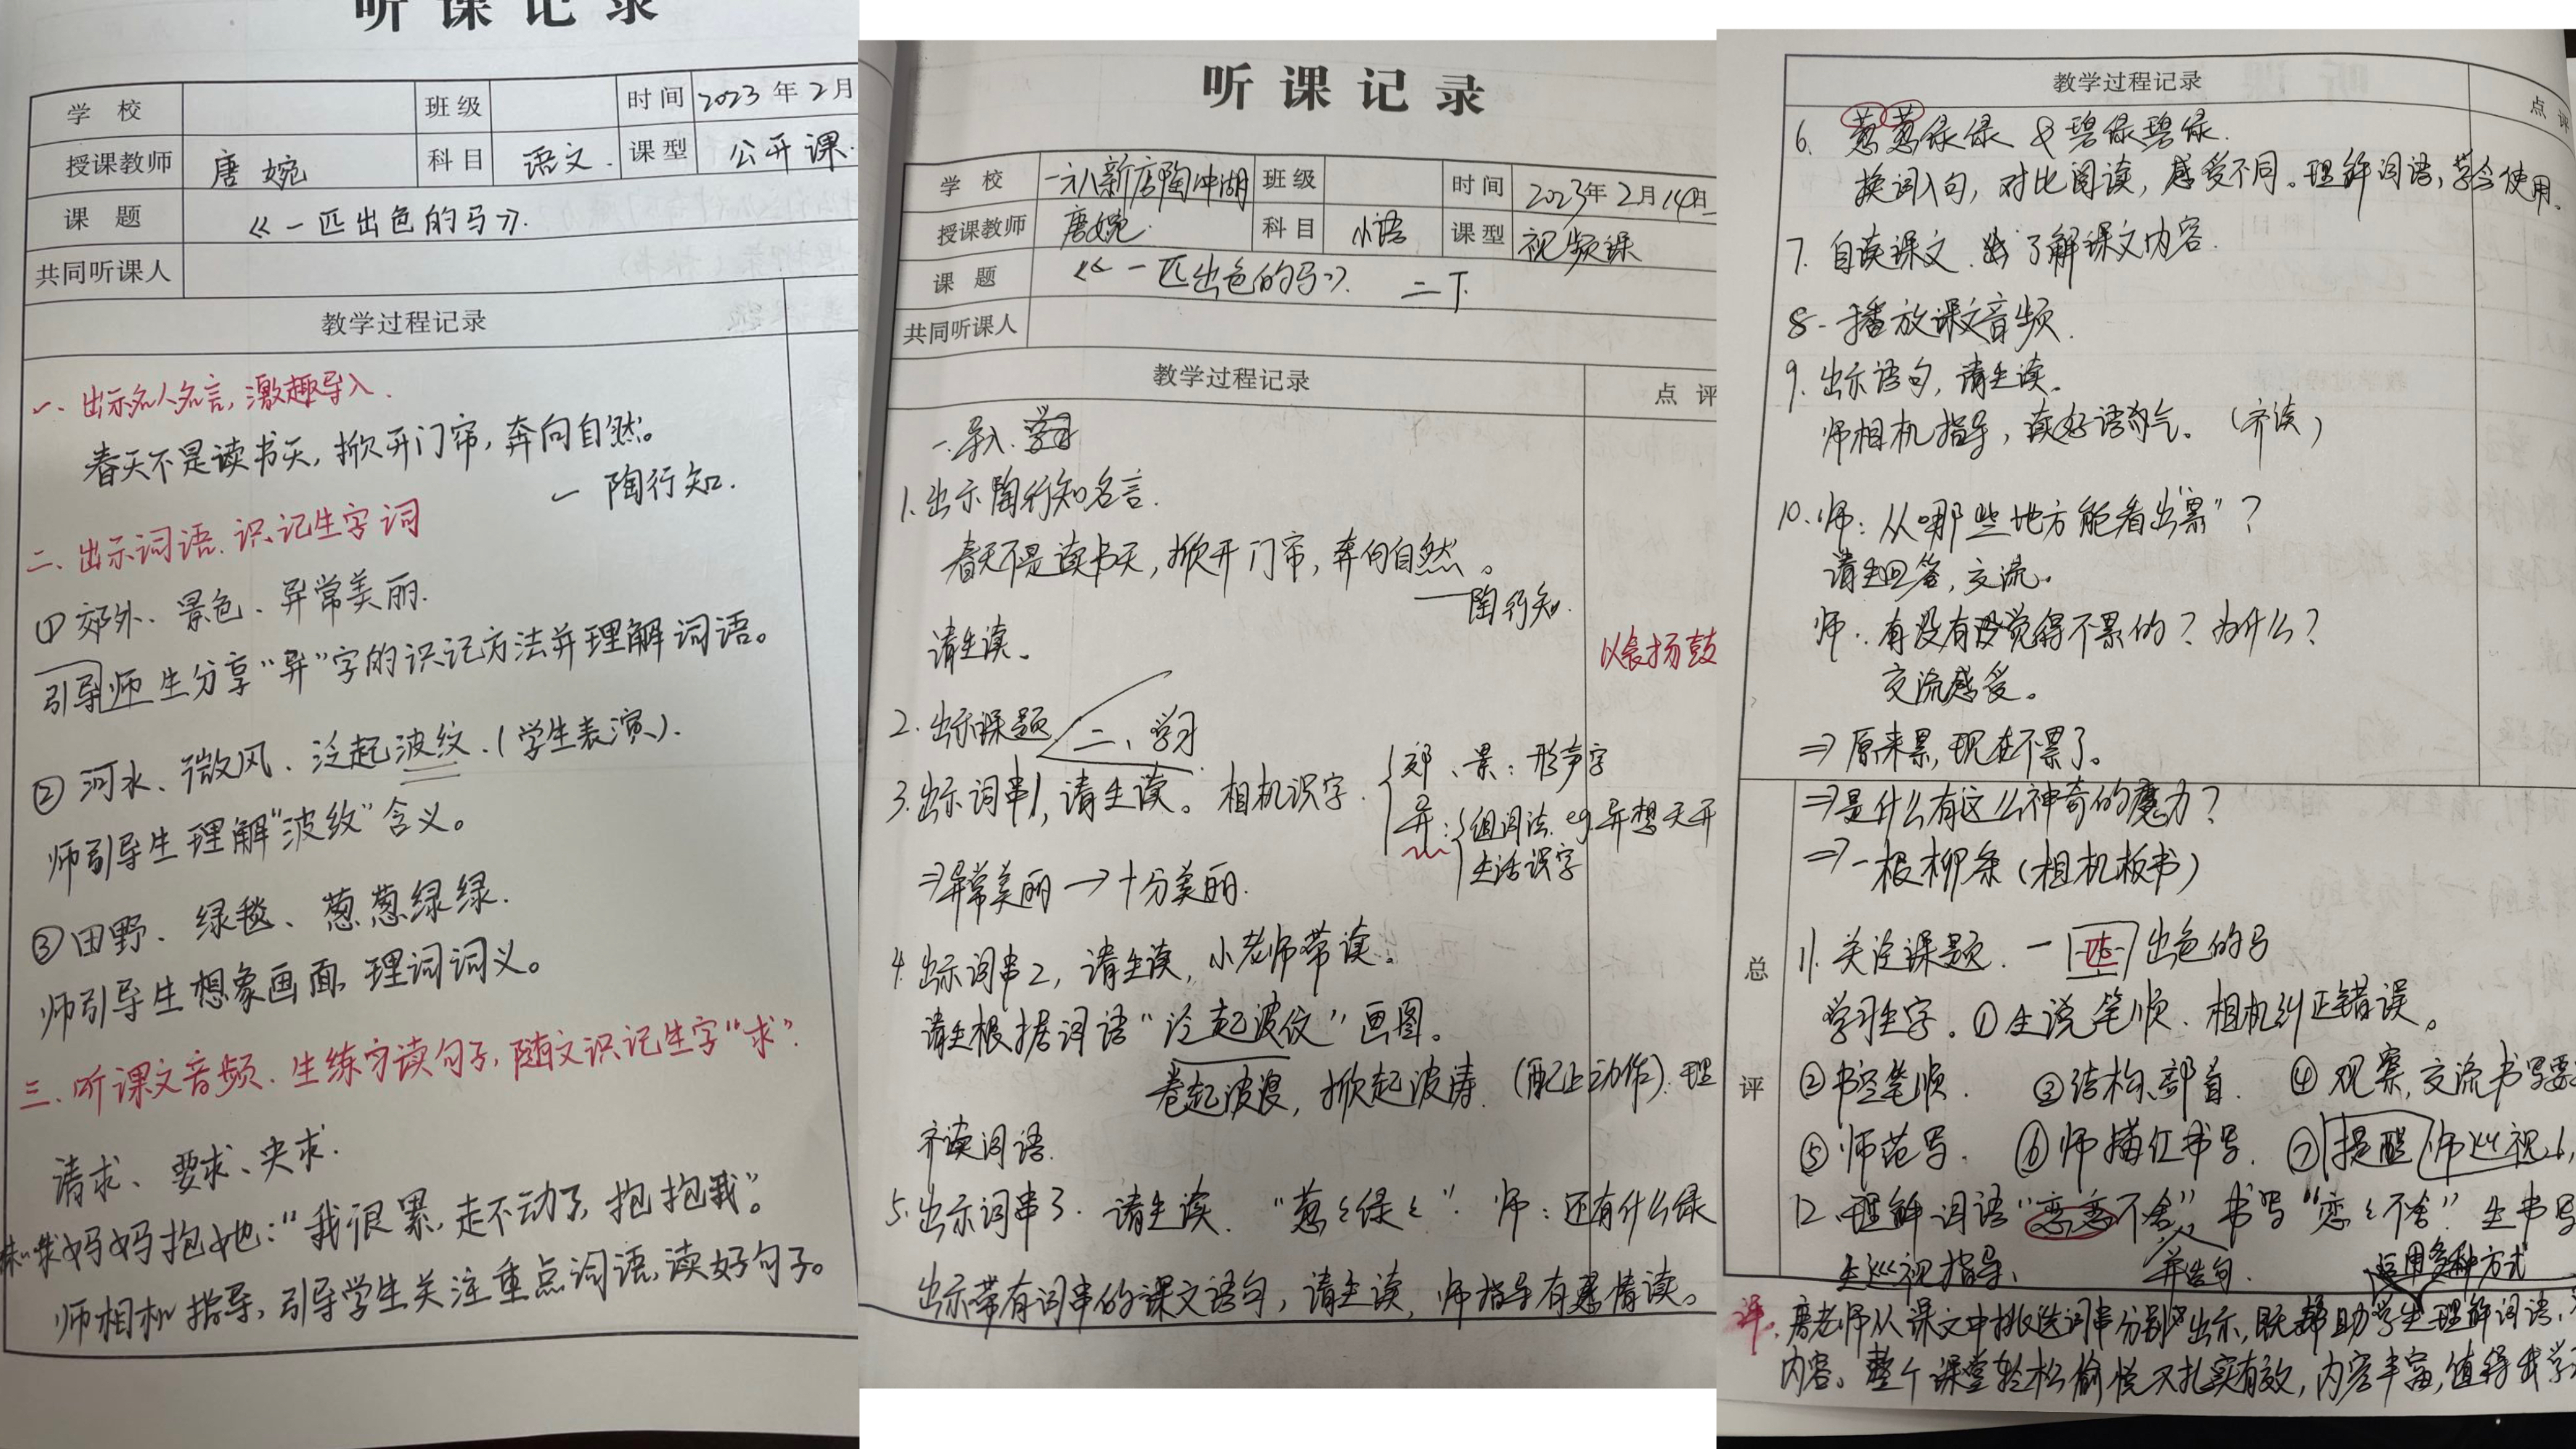 听课记录
学校 班级 时间 2023年2月
授课教师 唐婉 科目 语文. 课型 公开课.
课题 《一匹出色的马》.
共同听课人
教学过程记录
一、出示名人名言,激趣导入.
春天不是读书天,掀开门帘,奔向自然。
— 陶行知.
二、出示词语、识记生字词
①郊外、景色、异常美丽.
引导师生分享“异”字的识记方法并理解词语。
②河水、微风、泛起波纹.(学生表演).
师引导生理解“波纹”含义。
③田野、绿毯、葱葱绿绿.
师引导生想象画面,理词词义。
三、听课文音频、生练习读句子,随文识记生字“求”.
请求、要求、央求.
求妈妈抱她:“我很累,走不动了,抱抱我”。
师相机指导,引导学生关注重点词语,读好句子。
听课记录
学校 一六八新店陶冲湖 班级 时间 2023年2月14日
授课教师 唐婉. 科目 小语 课型 视频课
课题 《一匹出色的马》. 二下.
共同听课人
教学过程记录 点评
一.导入.
1.出示陶行知名言.
春天不是读书天,掀开门帘,奔向自然。
——陶行知.
请生读。
以表扬鼓
2.出示课题
二、学习
3.出示词串1,请生读。相机识字.
郊、景:形声字
异:组词法.eg.异想天开
生活识字
⇒异常美丽→十分美丽.
4.出示词串2,请生读,小老师带读。
请生根据词语“泛起波纹”画图。
卷起波浪,掀起波涛.(配上动作).理
齐读词语.
5.出示词串3.请生读.“葱〻绿〻”.师:还有什么绿
出示带有词串的课文语句,请生读,师指导有感情读。
教学过程记录 点评
6. 葱葱绿绿 & 碧绿碧绿.
换词入句,对比阅读,感受不同。理解词语,学会使用。
7. 自读课文.了解课文内容.
8. 播放课文音频.
9. 出示语句,请生读。
师相机指导,读好语气。(齐读)
10.师:从哪些地方能看出“累”?
请生回答,交流。
师:有没有觉得不累的?为什么?
交流感受。
⇒原来累,现在不累了。
⇒是什么有这么神奇的魔力?
⇒一根柳条(相机板书)
总评
11.关注课题.一匹出色的马
学习生字.①生说笔顺、相机纠正错误。
②书空笔顺. ③结构、部首. ④观察,交流书写要
⑤师范写. ⑥师描红书写. ⑦提醒 师巡视
12.理解词语“恋恋不舍”,书写“恋〻不舍”生书写
巡视指导、 并造句. 运用多种方式
评.唐老师从课文中挑选词串分别出示,既帮助学生理解词语,
内容。整个课堂轻松愉悦又扎实有效,内容丰富,值得我学